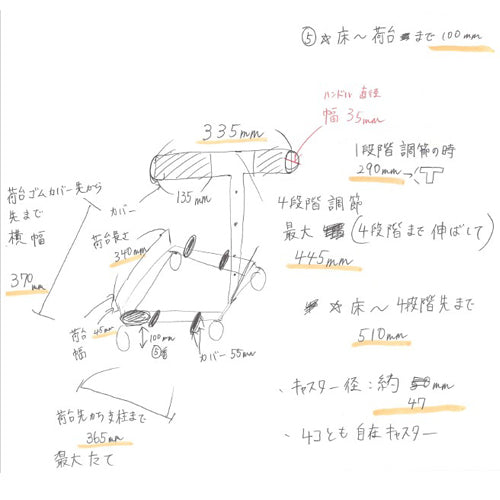 ⑤ ☆床～荷台まで100mm
ハンドル 直径
幅 35mm
335mm
1段階調節の時
290mm
135mm
カバー
荷台ゴムカバー先から
先まで
横幅
370mm
荷台長さ
340mm
4段階調節
最大 (4段階まで伸ばして)
445mm
☆床～4段階先まで
510mm
荷台
幅
45mm
100mm
⑤
カバー 55mm
荷台先から支柱まで
365mm
最大たて
、キャスター径:約 mm
47
、4コとも自在キャスター